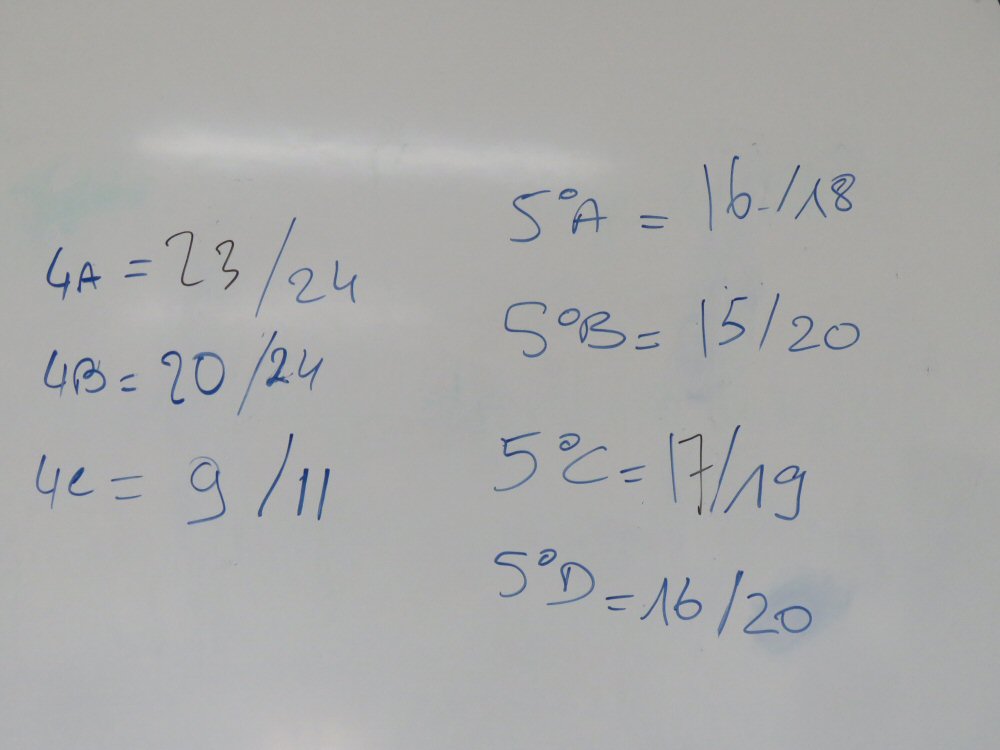 4A = 23/24
4B = 20/24
4C = 9/11
5°A = 16/18
5°B = 15/20
5°C = 17/19
5°D = 16/20